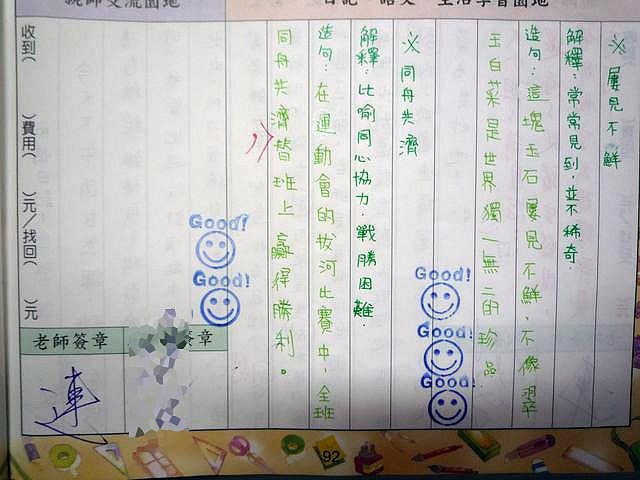 親師交流園地
日記、語文、生活學習園地
※屢見不鮮
解釋：常常見到，並不稀奇。
造句：這塊玉石屢見不鮮，不像翠
玉白菜是世界獨一無二的珍品
※同舟共濟
解釋：比喻同心協力，戰勝困難。
造句：在運動會的拔河比賽中，全班
同舟共濟，替班上贏得勝利。
Good!
Good!
Good!
Good!
Good!
收到（　）費用（　）元/找回（　）元
老師簽章
簽章
連
92